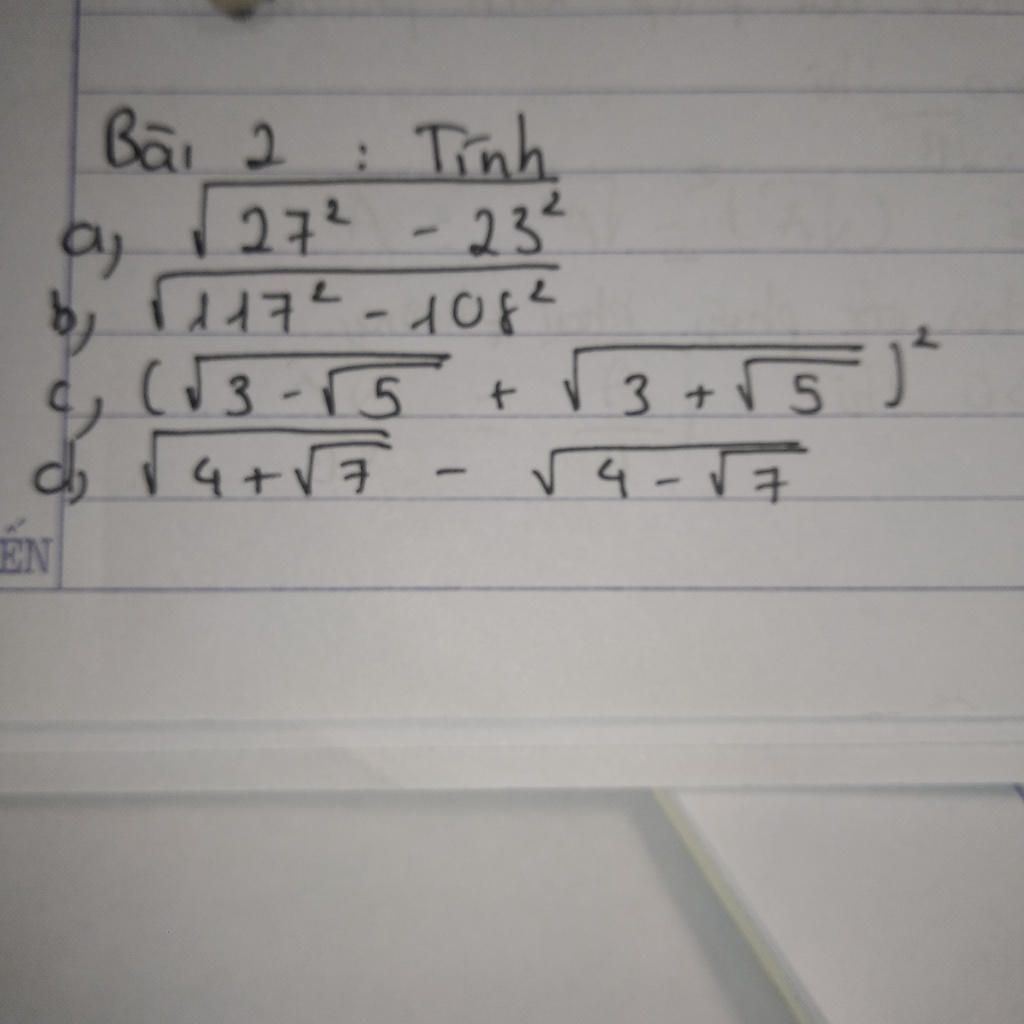 Bài 2 : Tính
a, √(27² - 23²)
b, √(117² - 108²)
c, (√(3 - √5) + √(3 + √5))²
d, √(4 + √7) - √(4 - √7)
ẾN